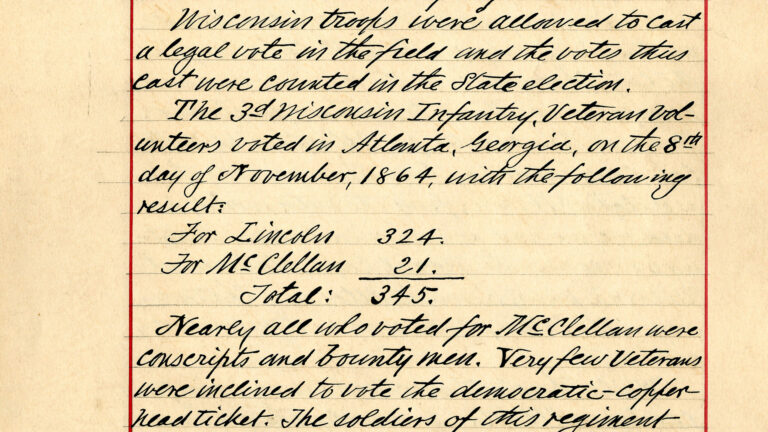 Wisconsin troops were allowed to cast
a legal vote in the field and the votes thus
cast were counted in the State election.
The 3d Wisconsin Infantry, Veteran Vol-
unteers voted in Atlanta, Georgia, on the 8th
day of November, 1864, with the following
result:
For Lincoln 324.
For McClellan 21.
Total: 345.
Nearly all who voted for McClellan were
conscripts and bounty men. Very few Veterans
were inclined to vote the democratic-copper-
head ticket. The soldiers of this regiment